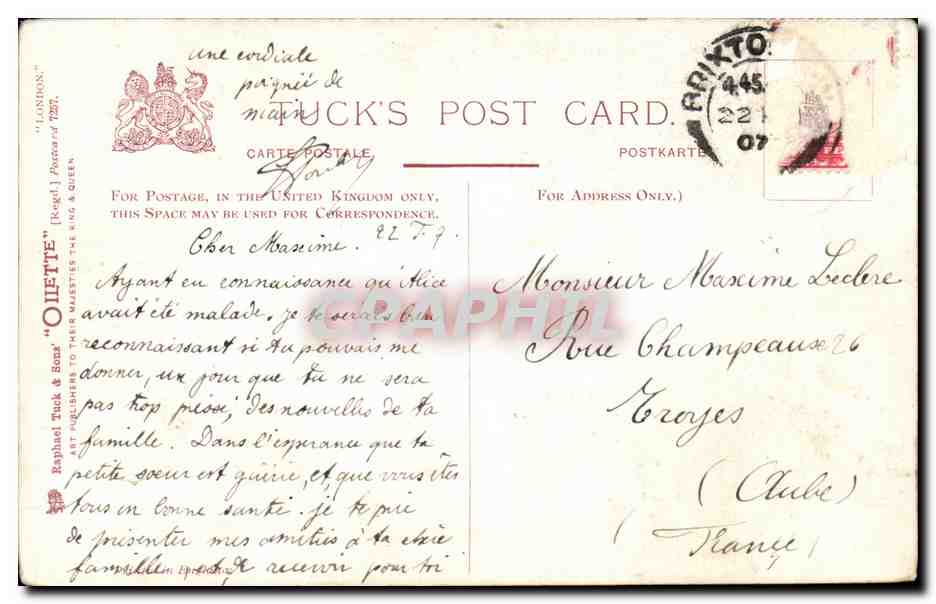 une cordiale
poignée de
main
TUCK'S POST CARD.
CARTE POSTALE
POSTKARTE
FOR POSTAGE, IN THE UNITED KINGDOM ONLY,
THIS SPACE MAY BE USED FOR CORRESPONDENCE.
FOR ADDRESS ONLY.)
BRIXTO
4.45
22
07
"LONDON."
Raphael Tuck & Sons' "OILETTE" [Regd.] Postcard 7257.
ART PUBLISHERS TO THEIR MAJESTIES THE KING & QUEEN.
22 7. 7.
Cher Maxime.
Ayant eu connaissance qu'Alice
avait été malade. je te serais bien
reconnaissant si tu pouvais me
donner, un jour que tu ne sera
pas trop pressé, des nouvelles de ta
famille. Dans l'espérance que ta
petite soeur est guérie, et, que vous êtes
tous en bonne santé. je te prie
de présenter mes amitiés à ta chère
famille et, de recevoir pour toi
Monsieur Maxime Leclere
Rue Champeaux 26
Troyes
(Aube)
France
CPAPHIL